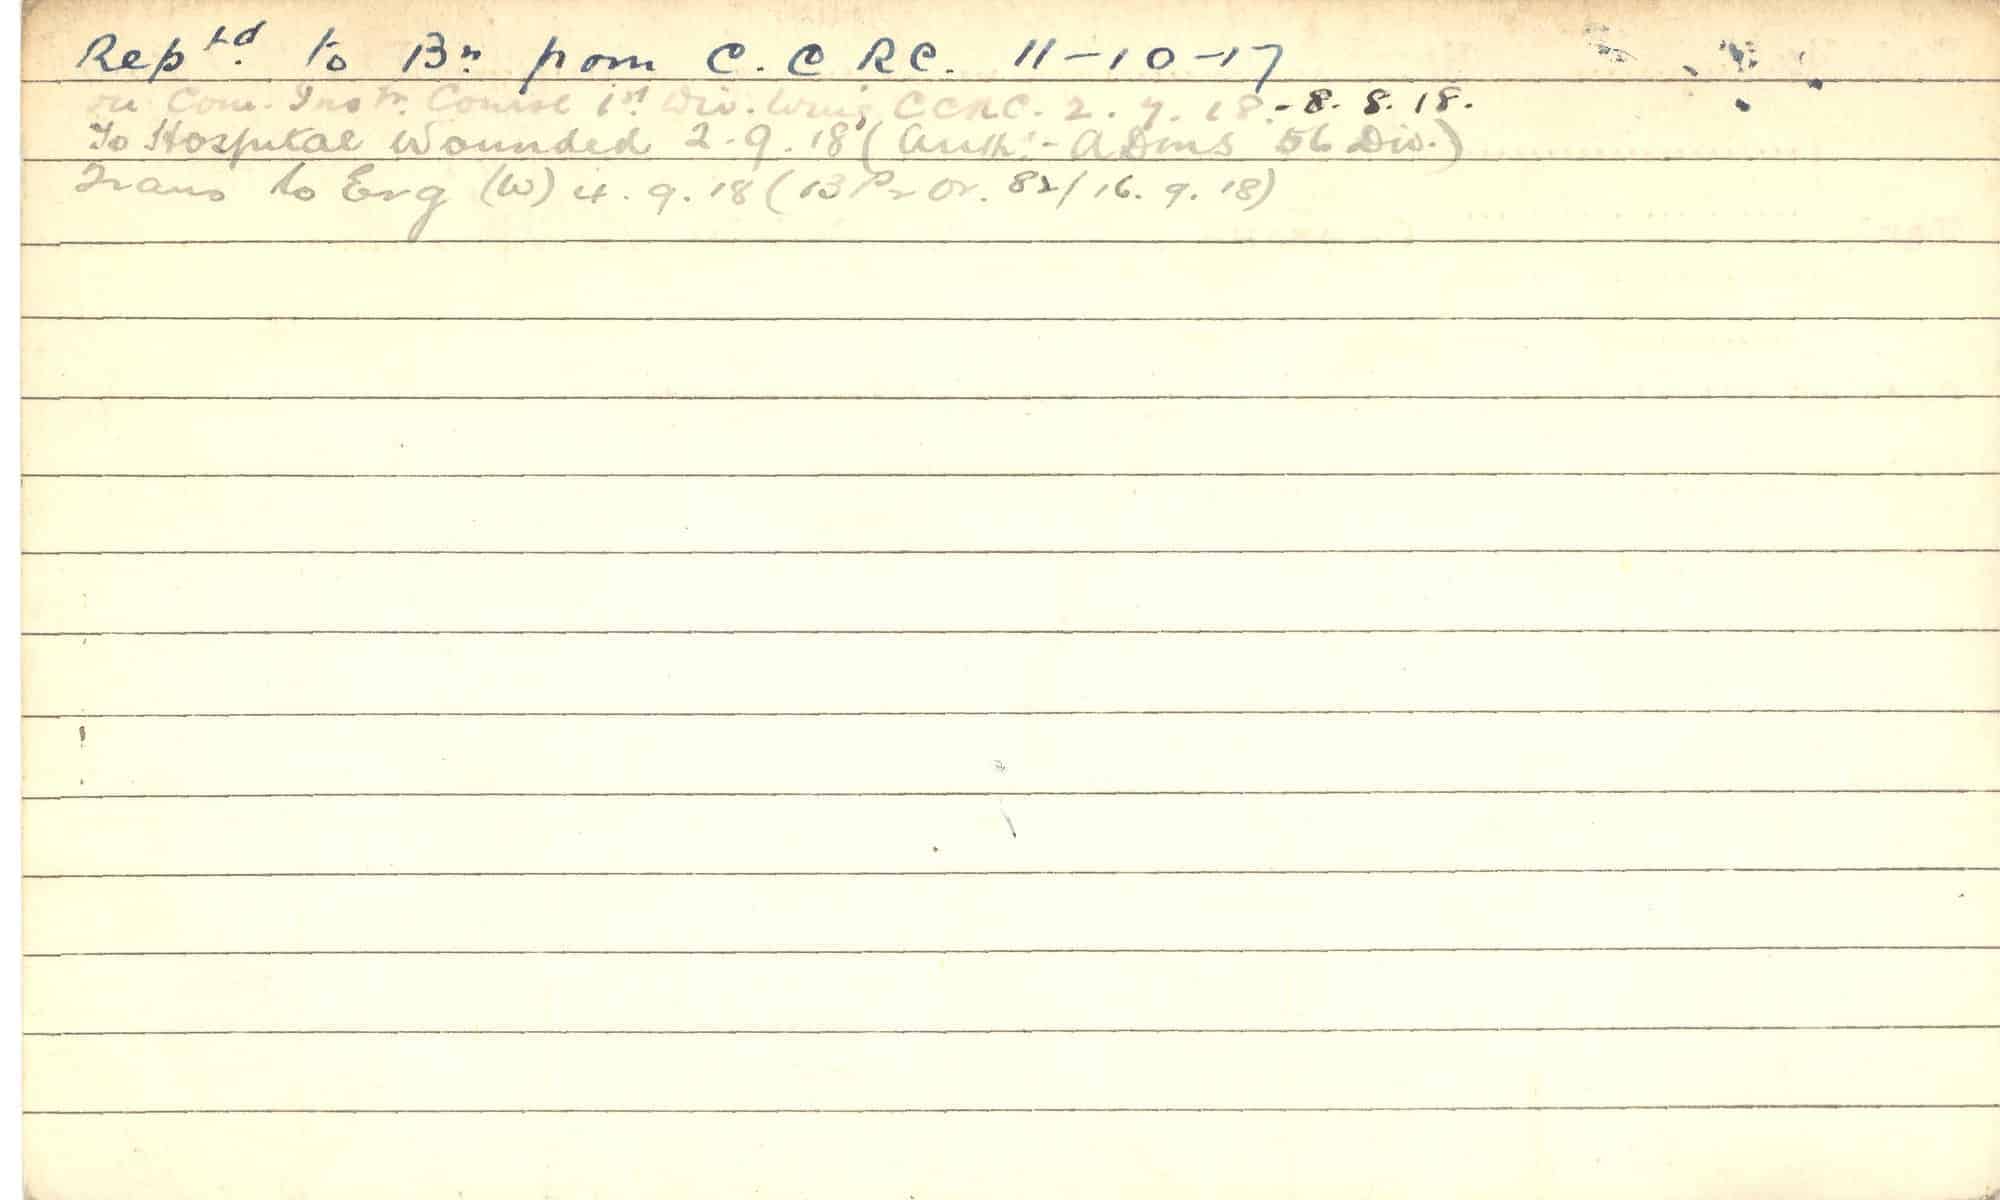 Reptd. to Bn from C.C RC. 11-10-17
on Com. Instr. Course 1st Div. Wing CCRC. 2. 7. 18. - 8. 8. 18.
To Hospital Wounded 2.9.18 (Auth:- ADMS 56 Div.)
Trans to Eng (W) 4.9.18 ( Or. 82/16.9.18)